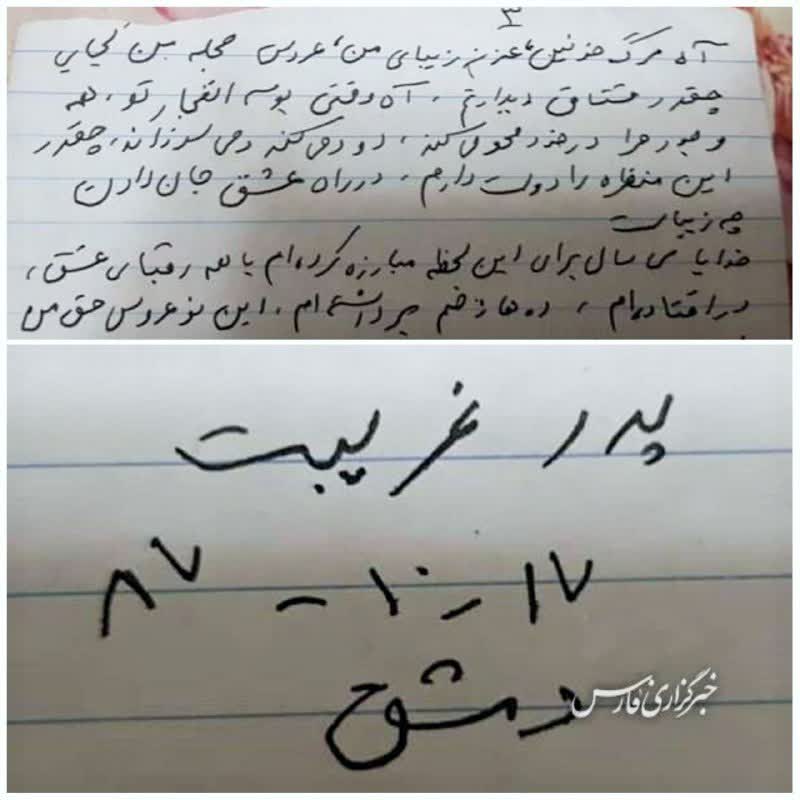 ۳
آه مرگ خونین، عزیز زیبای من، عروس حجله من کجایی
چقدر مشتاق دیدارتم، آه وقتی بوسه انفجار تو، همه
وجود مرا در خود محو می‌کند، دود می‌کند و می‌سوزاند، چقدر
این منظره را دوست دارم، در راه عشق جان دادن
چه زیباست
خدایا سی سال برای این لحظه مبارزه کرده‌ام با همه رقبای عشق،
در افتاده‌ام، ده‌ها زخم برداشته‌ام، این نو عروس حق من
پدر غریبت
۱۷-۱۰-۸۷
دمشق
خبرگزاری فارس